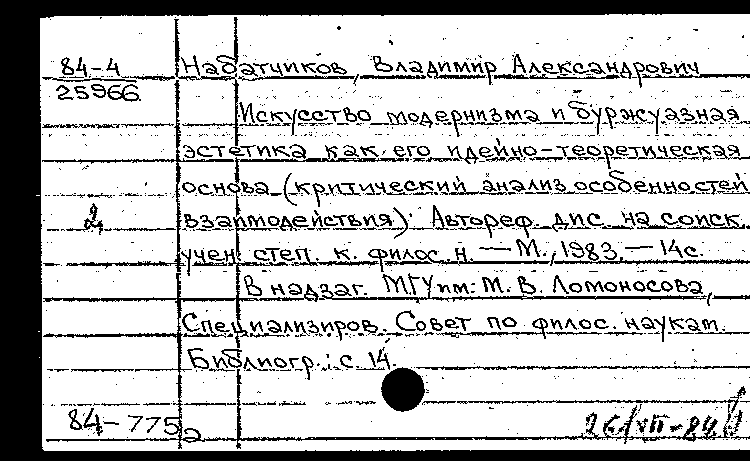 84-4 Набатчиков, Владимир Александрович
25966
Искусство модернизма и буржуазная
эстетика как его идейно-теоретическая
основа (критический анализ особенностей
2 взаимодействия): Автореф. дис. на соиск.
учен. степ. к. филос. н. — М., 1983. — 14с.
В надзаг. МГУ им. М. В. Ломоносова,
Специализиров. Совет по филос. наукам.
Библиогр.: с. 14.
84-7752 26/VII-84